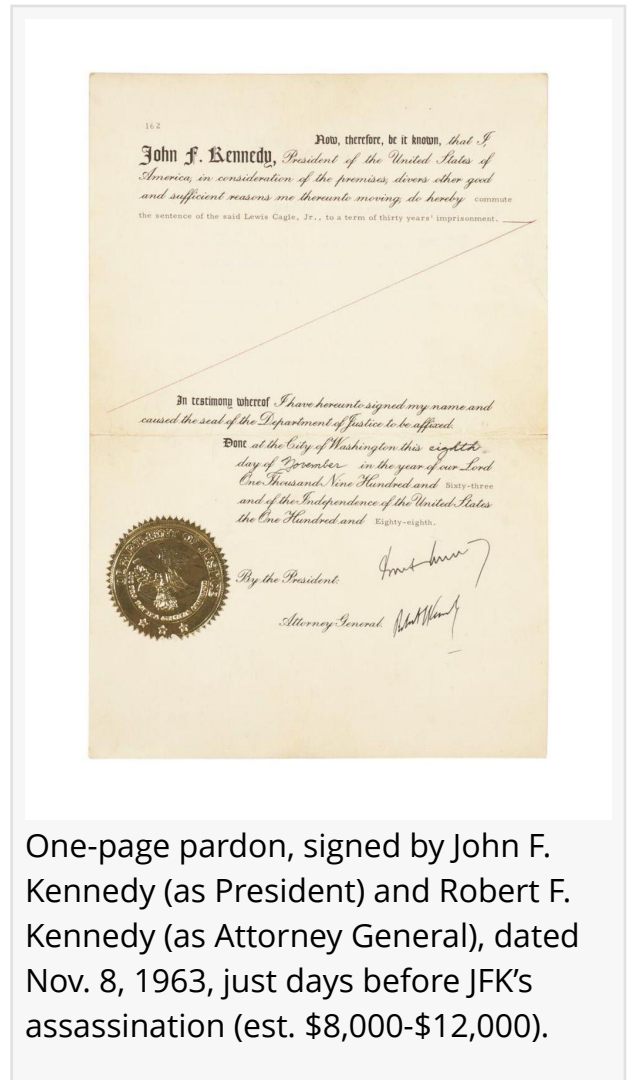 162
Now, therefore, be it known, that I,
John F. Kennedy, President of the United States of
America, in consideration of the premises, divers other good
and sufficient reasons me thereunto moving, do hereby commute
the sentence of the said Lewis Cagle, Jr., to a term of thirty years' imprisonment.
In testimony whereof I have hereunto signed my name and
caused the seal of the Department of Justice to be affixed.
Done at the City of Washington this eighth
day of November in the year of our Lord
One Thousand Nine Hundred and Sixty-three
and of the Independence of the United States
the One Hundred and Eighty-eighth.
By the President:
Attorney General.
One-page pardon, signed by John F.
Kennedy (as President) and Robert F.
Kennedy (as Attorney General), dated
Nov. 8, 1963, just days before JFK’s
assassination (est. $8,000-$12,000).